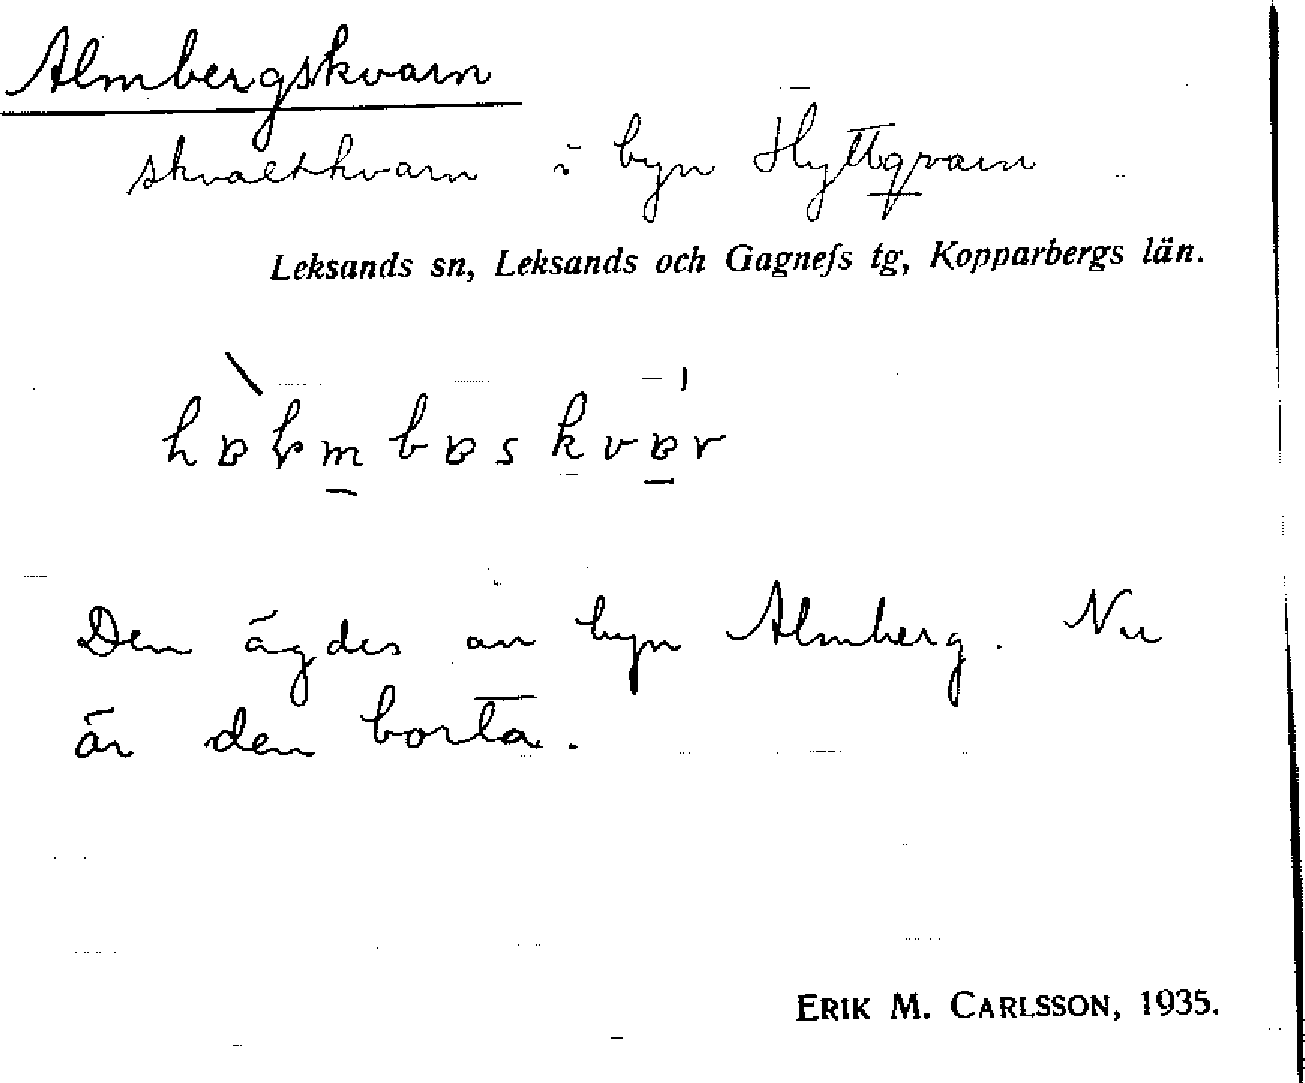 Almbergskvarn
skvaltkvarn i byn Hyttqvarn
Leksands sn, Leksands och Gagnefs tg, Kopparbergs län.
Den ägdes av byn Almberg. Nu
är den borta.
ERIK M. CARLSSON, 1935.